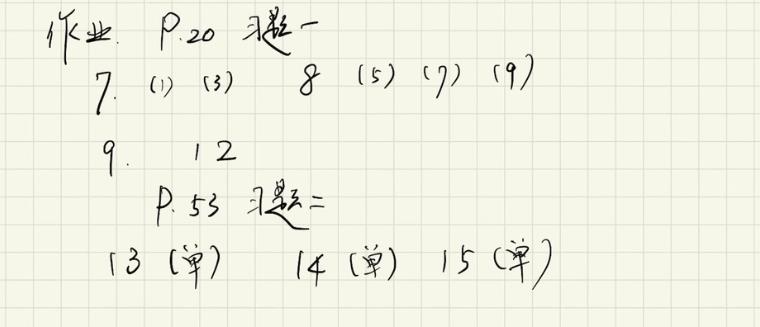 作业. P.20 习题一
7. (1) (3) 8 (5) (7) (9)
9. 12
P.53 习题二
13 (单) 14 (单) 15 (单)